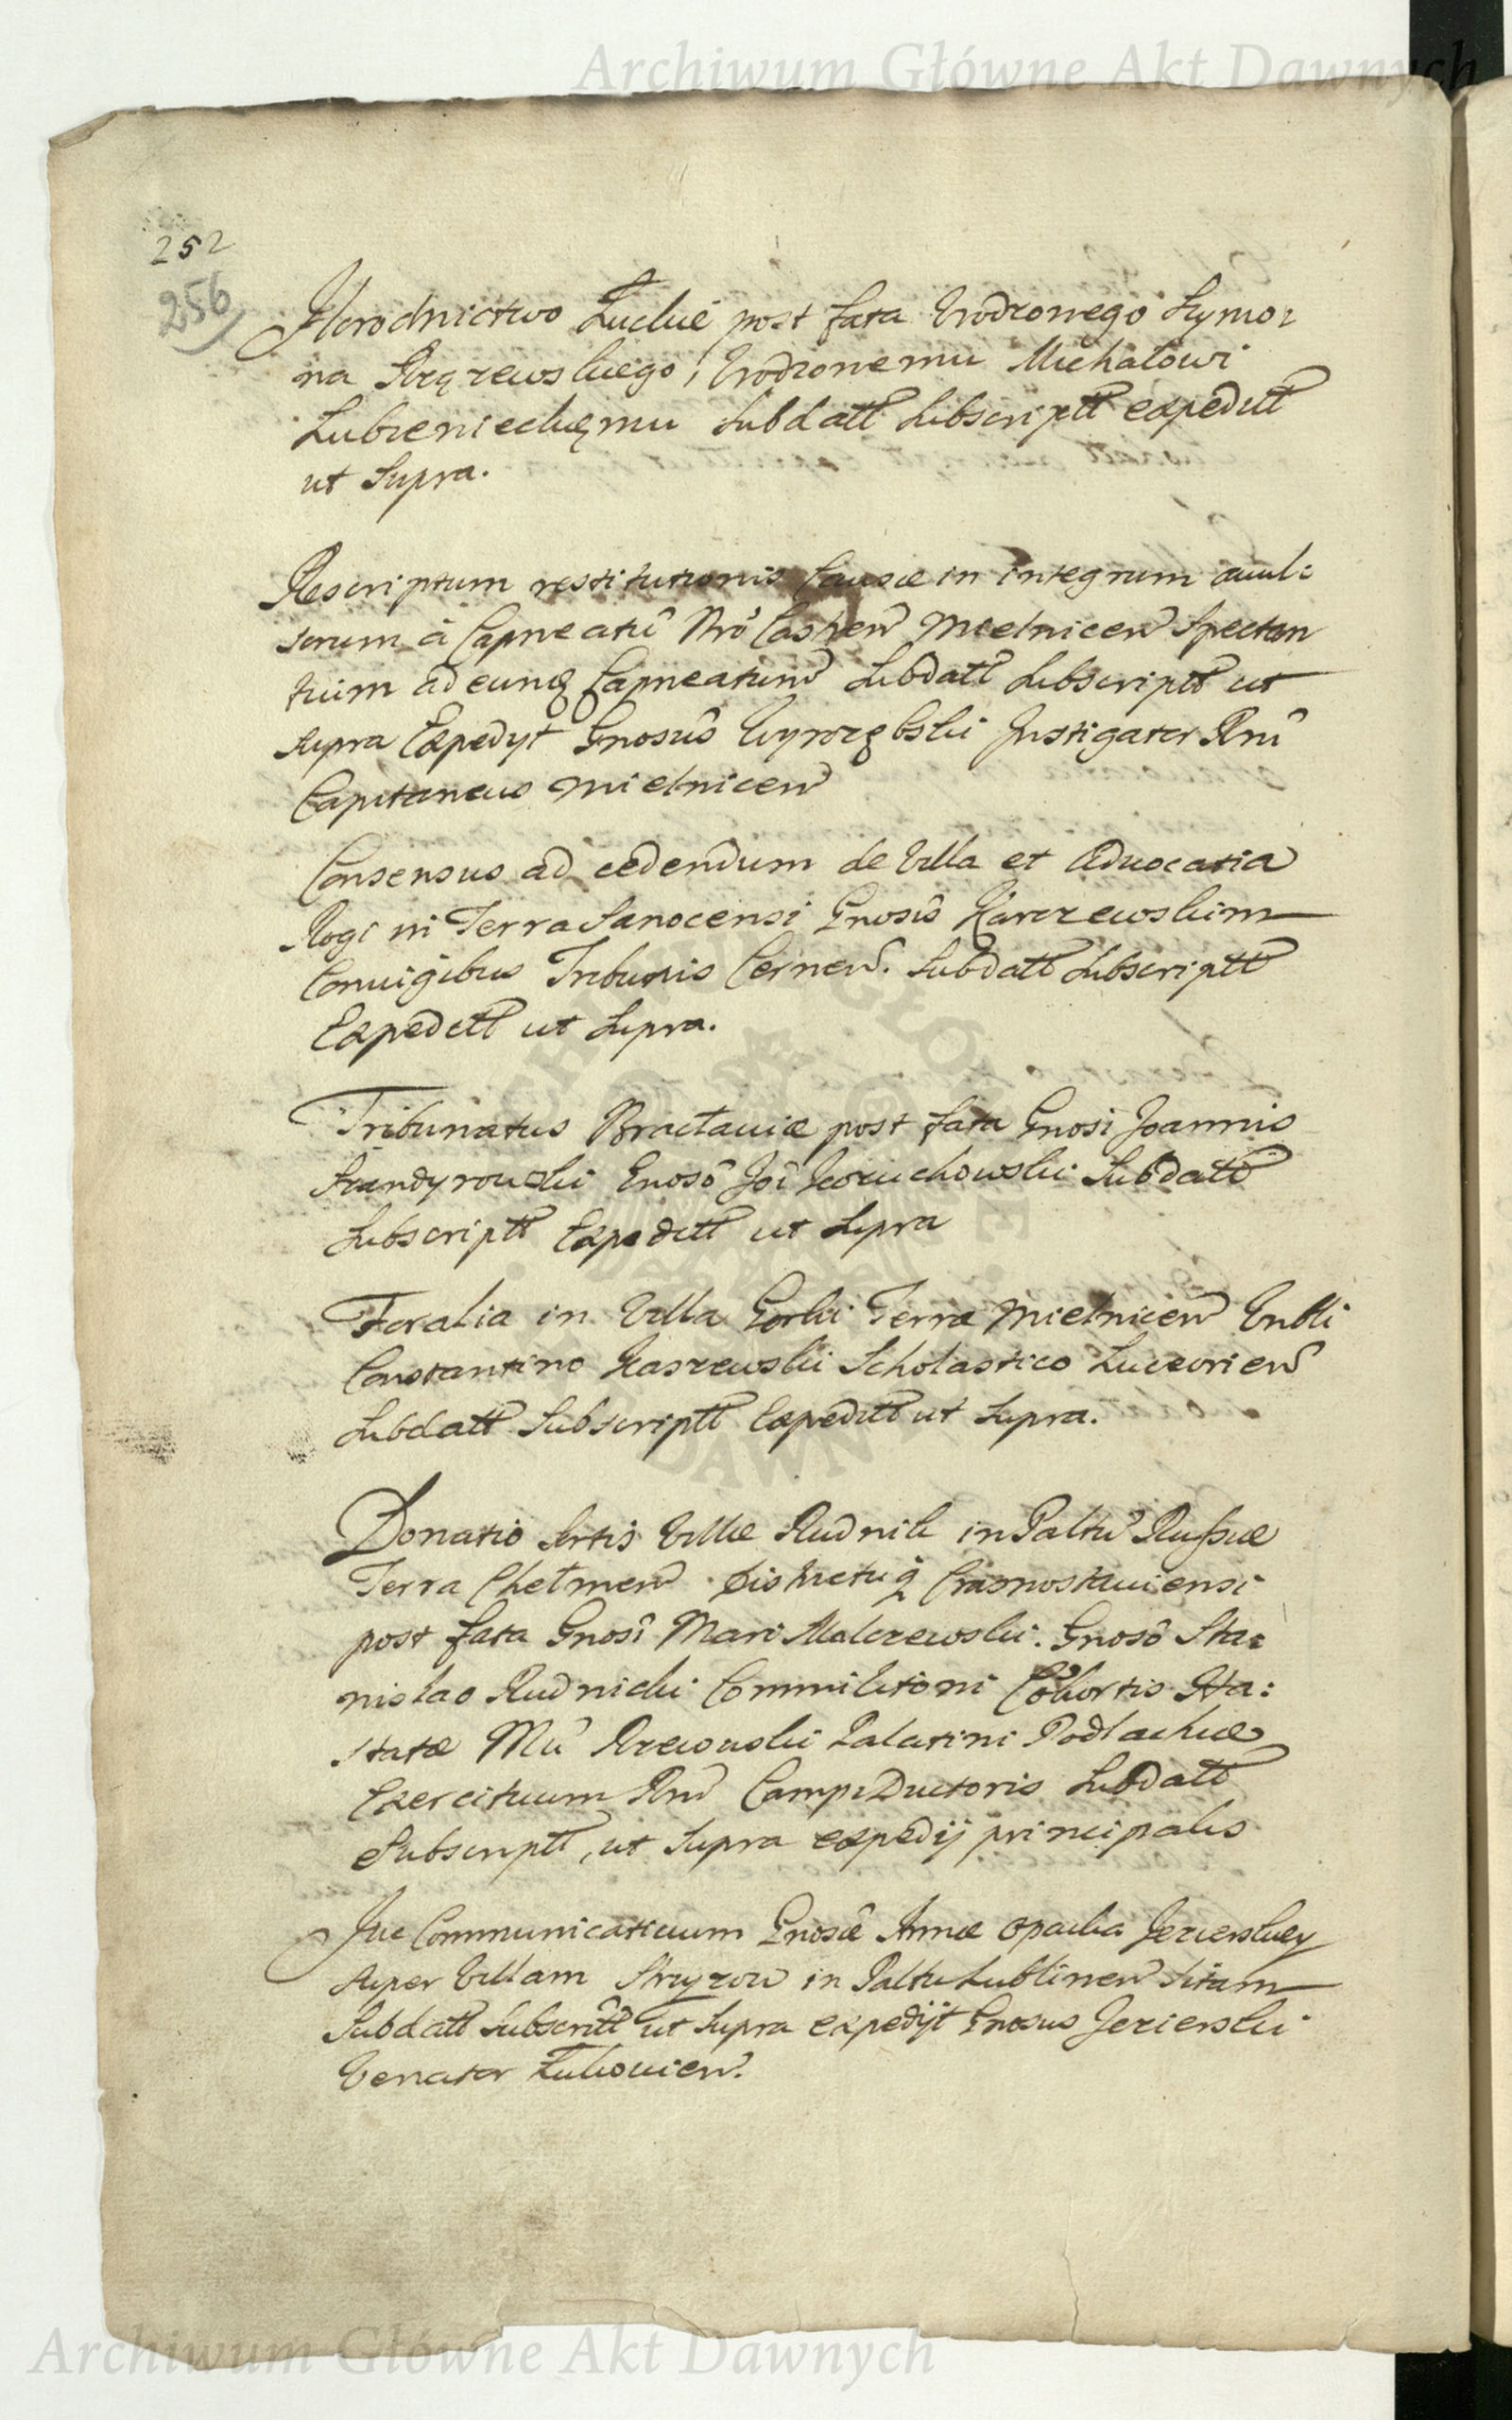 Archiwum Główne Akt Dawnych
252
256
Horodnictwo Łuckie post fata Urodzonego Szymo:
na Urodzonemu Michałowi
Lubienieckięmu Subdatt Subscriptt expeditt
ut Supra.
Rescriptum restitutionis Causæ in integrum avul:
sorum à Capneatû Mielnicen Spectan
tium ad eunq Capneatum Subdatt Subscriptt ut
supra Expedyt Gnosus Wyrozębski Instigator Rni
Capitaneus Mielnicen
Consensus ad cedendum de Villa et Advocatia
Rogi in Terra Sanocensi Gnosis Karczewskim
Coniugibus Tribunis Cernen. Subdatt Subscriptt
Expeditt ut Supra.
Tribunatus Bracłaviæ post fata Gnosi Joannis
Szandyrowski Gnosô Joî Kozuchowski Subdatt
Subscriptt Expeditt ut Supra
Foralia in Villa Gorki Terræ Mielnicen Vnbli
Constantino Kaszewski Scholastico Luceorien
Subdatt Subscriptt Expeditt ut Supra.
Donatio Artis Villæ Rudnik in Paltu Russiæ
Terra Chełmen Districtuq Crasnostaviensi
post fata Gnosî Mari Malczewski. Gnosô Sta:
nislao Rudnicki Commilitoni Cohortis Ha:
statæ Mci Rzewuski Palatini Podlachiæ
Exercituum Rni CampiDuctoris Subdatt
Subscriptt, ut Supra expedij principalis
Jus Communicativum Gnosæ Annæ Opacka Jezierskiey
super Villam Stryzow in Paltu Lublinen sitam
Subdatt Subscritt ut Supra expedijt Gnosus Jezierski
Venator Łukovien.
ARCHIWUM GŁÓWNE AKT DAWNYCH
Archiwum Główne Akt Dawnych